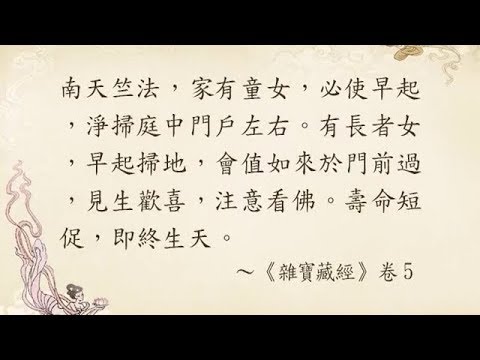 南天竺法，家有童女，必使早起
，淨掃庭中門戶左右。有長者女
，早起掃地，會值如來於門前過
，見生歡喜，注意看佛。壽命短
促，即終生天。
～《雜寶藏經》卷5